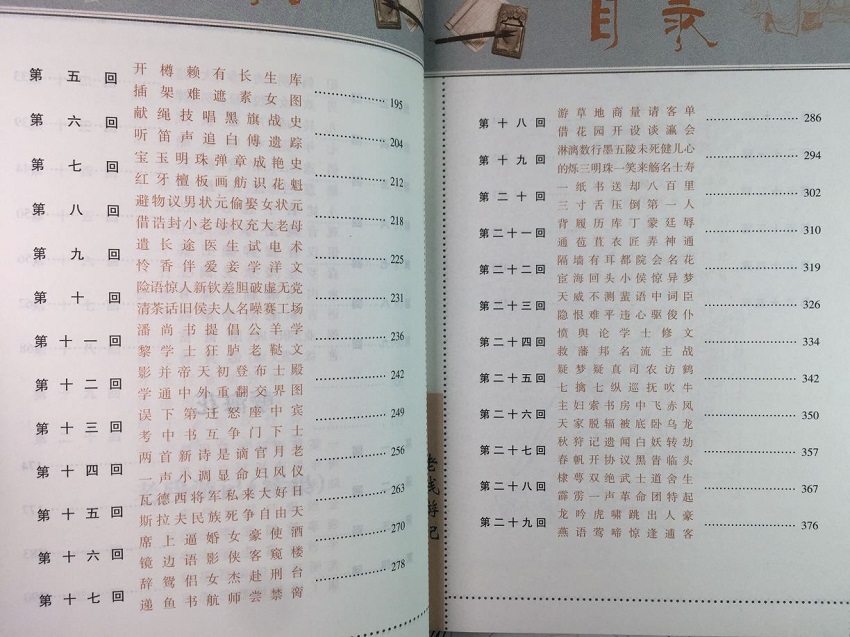 第五回 开樽赖有长生库
插架难遮素女图 195
第六回 献绳技唱黑旗战史
听笛声追白傅遗踪 204
第七回 宝玉明珠弹章成艳史
红牙檀板画舫识花魁 212
第八回 避物议男状元偷娶女状元
借诰封小老母权充大老母 218
第九回 遣长途医生试电术
怜香伴爱妾学洋文 225
第十回 险语惊人新钦差胆破虚无党
清茶话旧侯夫人名噪赛工场 231
第十一回 潘尚书提倡公羊学
黎学士狂胪老鞑文 236
第十二回 影并帝天初登布士殿
学通中外重翻交界图 242
第十三回 误下第迁怒座中宾
考中书互争门下士 249
第十四回 两首新诗是谪官月老
一声小调显命妇风仪 256
第十五回 瓦德西将军私来大好日
斯拉夫民族死争自由天 263
第十六回 席上逼婚女豪使酒
镜边语影侠客窥楼 270
第十七回 辞鸳侣女杰赴刑台
递鱼书航师尝禁脔 278
老残游记
目录
第十八回 游草地商量请客单
借花园开设谈瀛会 286
第十九回 淋漓数行墨五陵未死健儿心
的烁三明珠一笑来觞名士寿 294
第二十回 一纸书送却八百里
三寸舌压倒第一人 302
第二十一回 背履历库丁蒙廷辱
通苞苴衣匠弄神通 310
第二十二回 隔墙有耳都院会名花
宦海回头小侯惊异梦 319
第二十三回 天威不测蜚语中词臣
隐恨难平违心驱俊仆 326
第二十四回 愤舆论学士修文
救藩邦名流主战 334
第二十五回 疑梦疑真司农访鹤
七擒七纵巡抚吹牛 342
第二十六回 主妇索书房中飞赤凤
天家脱辐被底卧乌龙 350
第二十七回 秋狩记遗闻白妖转劫
春帆开协议黑眚临头 357
第二十八回 棣萼双绝武士道舍生
霹雳一声革命团特起 367
第二十九回 龙吟虎啸跳出人豪
燕语莺啼惊逢逋客 376